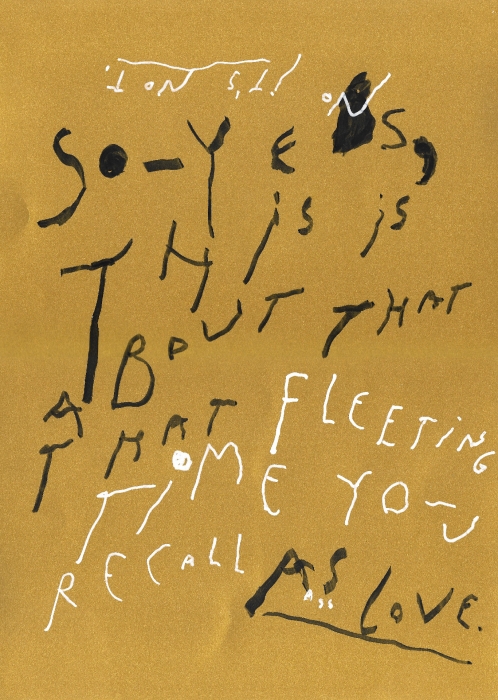 SO-YES,
THiS iS
ABOUT THAT
THAT FLEETiNG
TiME YOU
RECALL AS
LOVE.